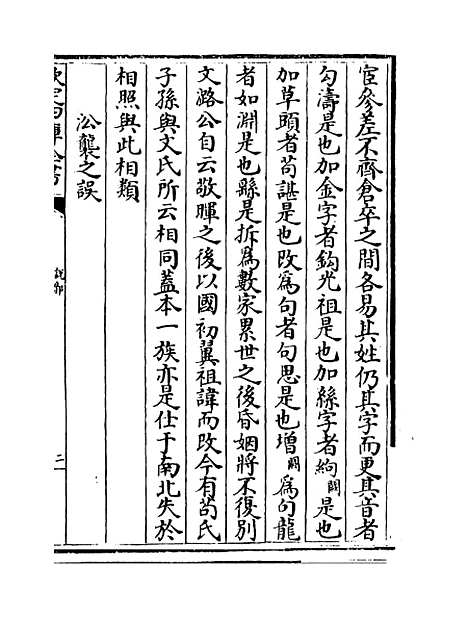 宦參差不齊倉卒之間各易其姓仍其字而更其音者
勾濤是也加金字者鈎光祖是也加絲字者絢闕是也
加草頭者苟諶是也改為句者句思是也增闕為句龍
者如淵是也繇是拆為數家累世之後昏姻將不復別
文潞公自云敬暉之後以國初翼祖諱而改今有苟氏
子孫與文氏所云相同蓋本一族亦是仕于南北失於
相照與此相類
沿襲之誤
欽定四庫全書
說郛
二